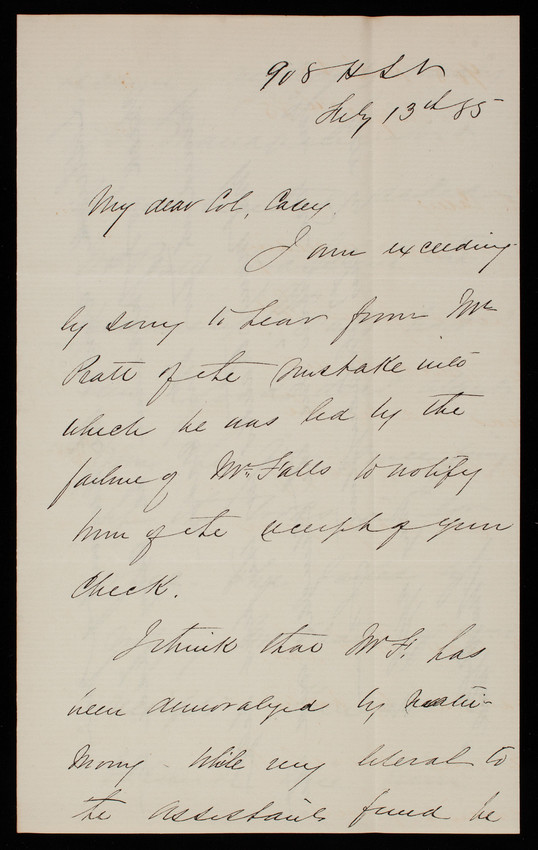 908 H St
Feby 13th 85
My dear Col. Casey.
I am exceeding-
ly sorry to hear from Mr
Pratt of the mistake into
which he was led by the
failure of Mr. Falls to notify
him of the receipt of your
check.
I think that Mr F. has
been demoralized by matri-
mony - While very liberal to
the assistants fund he